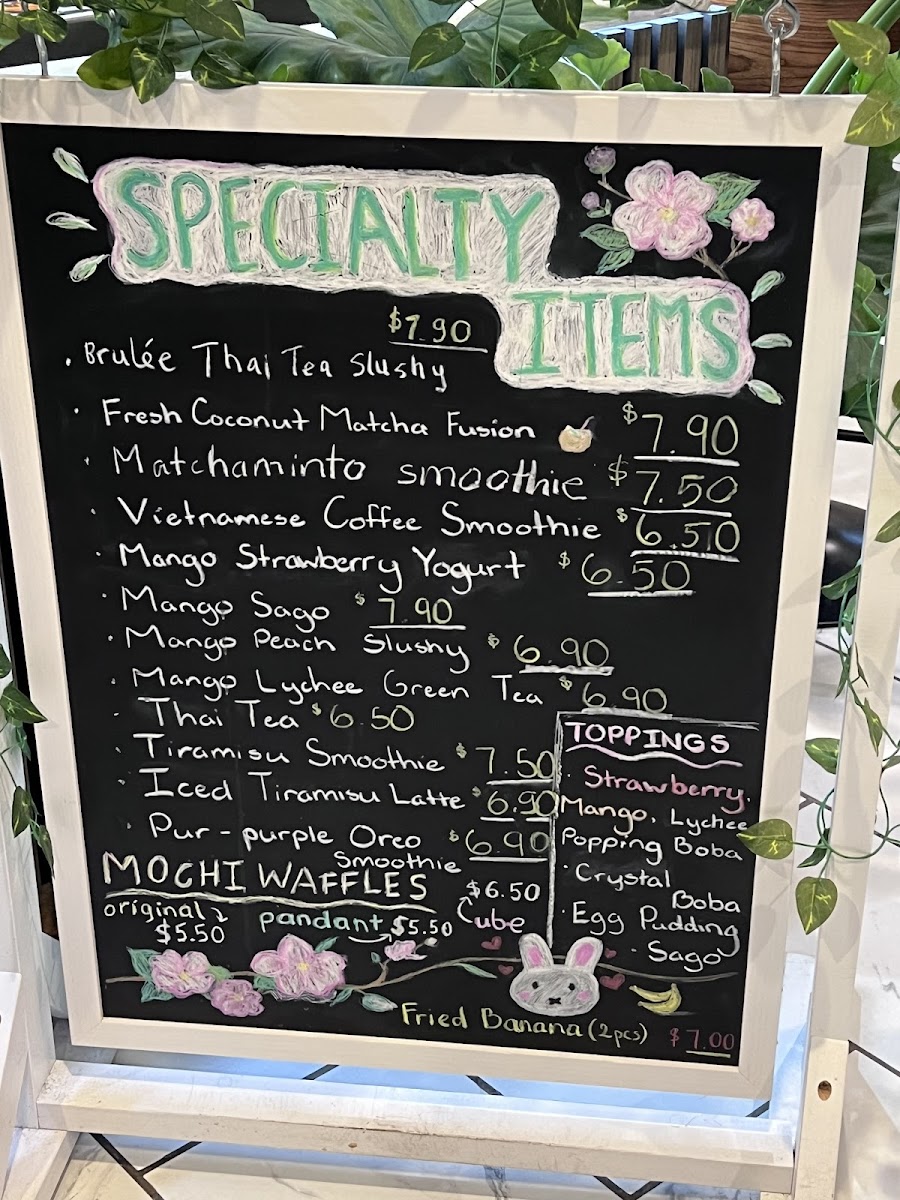 SPECIALTY
ITEMS
$7.90
• Brulée Thai Tea Slushy
• Fresh Coconut Matcha Fusion $7.90
• Matchaminto smoothie $7.50
• Vietnamese Coffee Smoothie $6.50
• Mango Strawberry Yogurt $6.50
• Mango Sago $7.90
• Mango Peach Slushy $6.90
• Mango Lychee Green Tea $6.90
• Thai Tea $6.50
• Tiramisu Smoothie $7.50
• Iced Tiramisu Latte $6.90
• Pur-purple Oreo $6.90
Smoothie
TOPPINGS
• Strawberry,
Mango, Lychee
Popping Boba
• Crystal
Boba
• Egg Pudding
• Sago
MOCHI WAFFLES
original
$5.50
pandant $5.50
$6.50
ube
Fried Banana (2pcs) $7.00